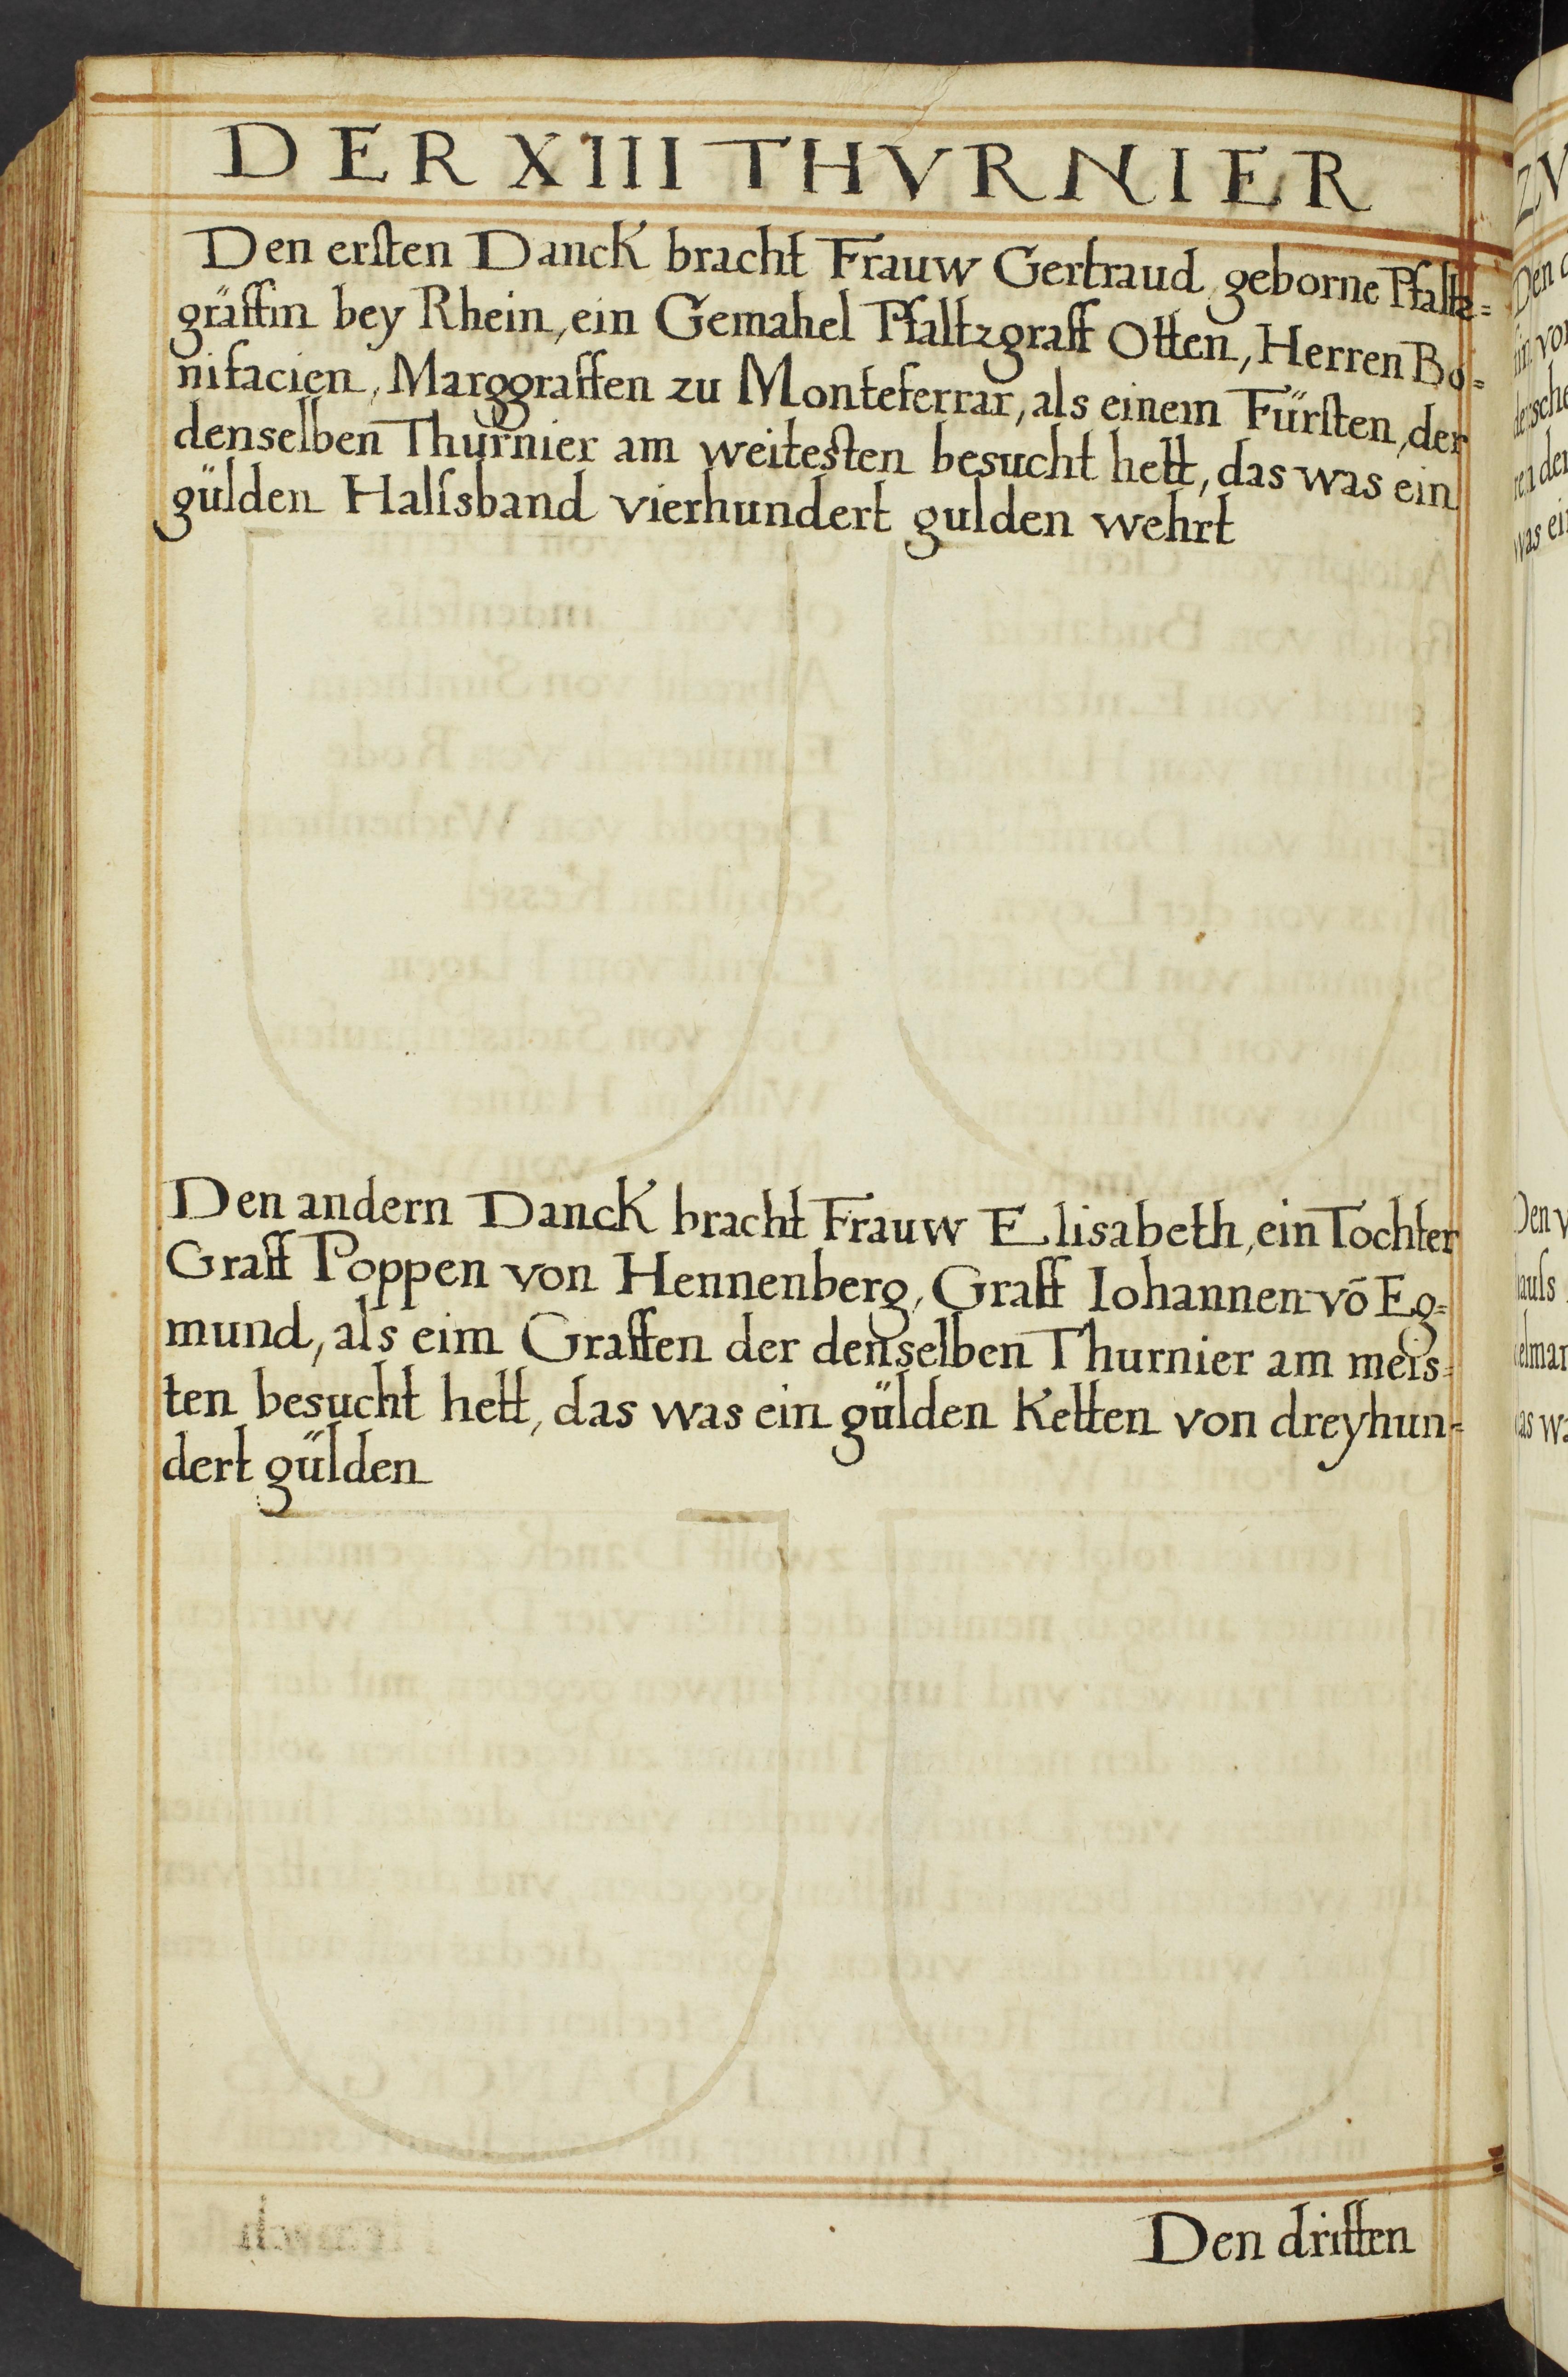 DER XIII THVRNIER
Den ersten Danck bracht Frauw Gertraud geborne Pfaltz=
gräffin bey Rhein, ein Gemahel Pfaltzgraff Otten, Herren Bo=
nifacien, Marggraffen zu Monteferrar, als einem Fürsten, der
denselben Thurnier am weitesten besucht hett, das was ein
gülden Halssband vierhundert gulden wehrt
Den andern Danck bracht Frauw Elisabeth, ein Tochter
Graff Poppen von Hennenberg, Graff Iohannen võ Eg=
mund, als eim Graffen der denselben Thurnier am meis=
ten besucht hett, das was ein gülden Ketten von dreyhun=
dert gülden
Den dritten